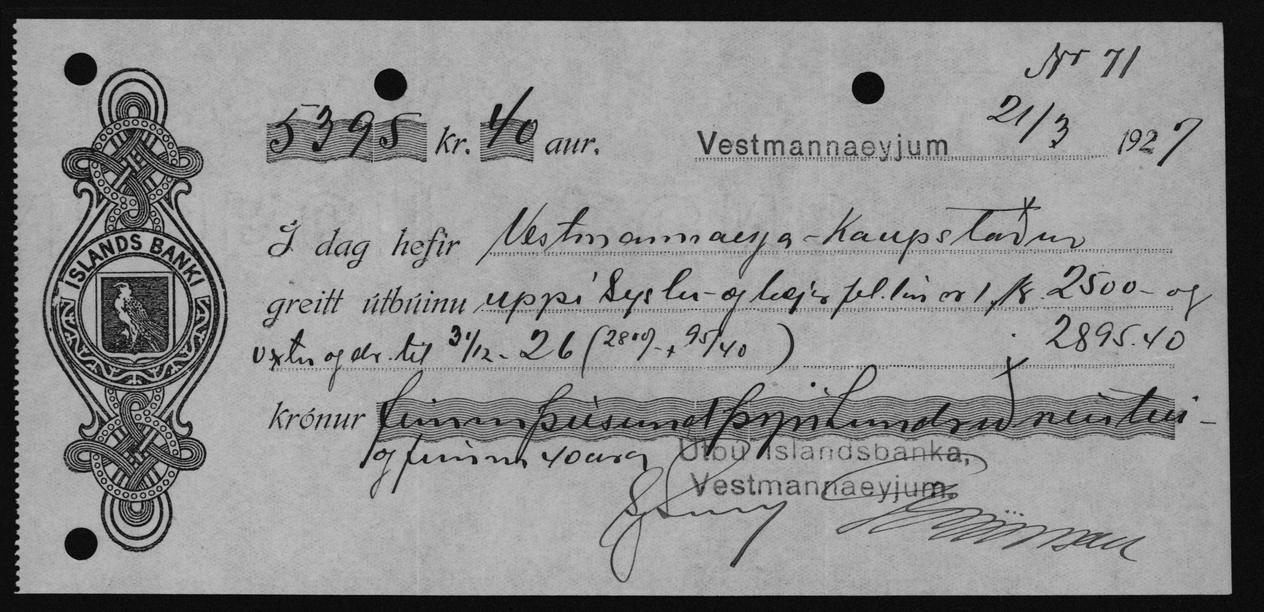 Nr 71
5395 kr. 40 aur. Vestmannaeyjum 21/3 1927
ÍSLANDS BANKI
Í dag hefir Vestmannaeyja-Kaupstaður
greitt útbúinu uppí Syslu- og bæjar 2500- og
vxtu og dr. til 31/12 - 26 (2800,- + 95/40) 2895.40
krónur fimm þúsund þrjú hundruð níutíu -
og fimm 40 aura
Útbú Íslandsbanka,
Vestmannaeyjum.